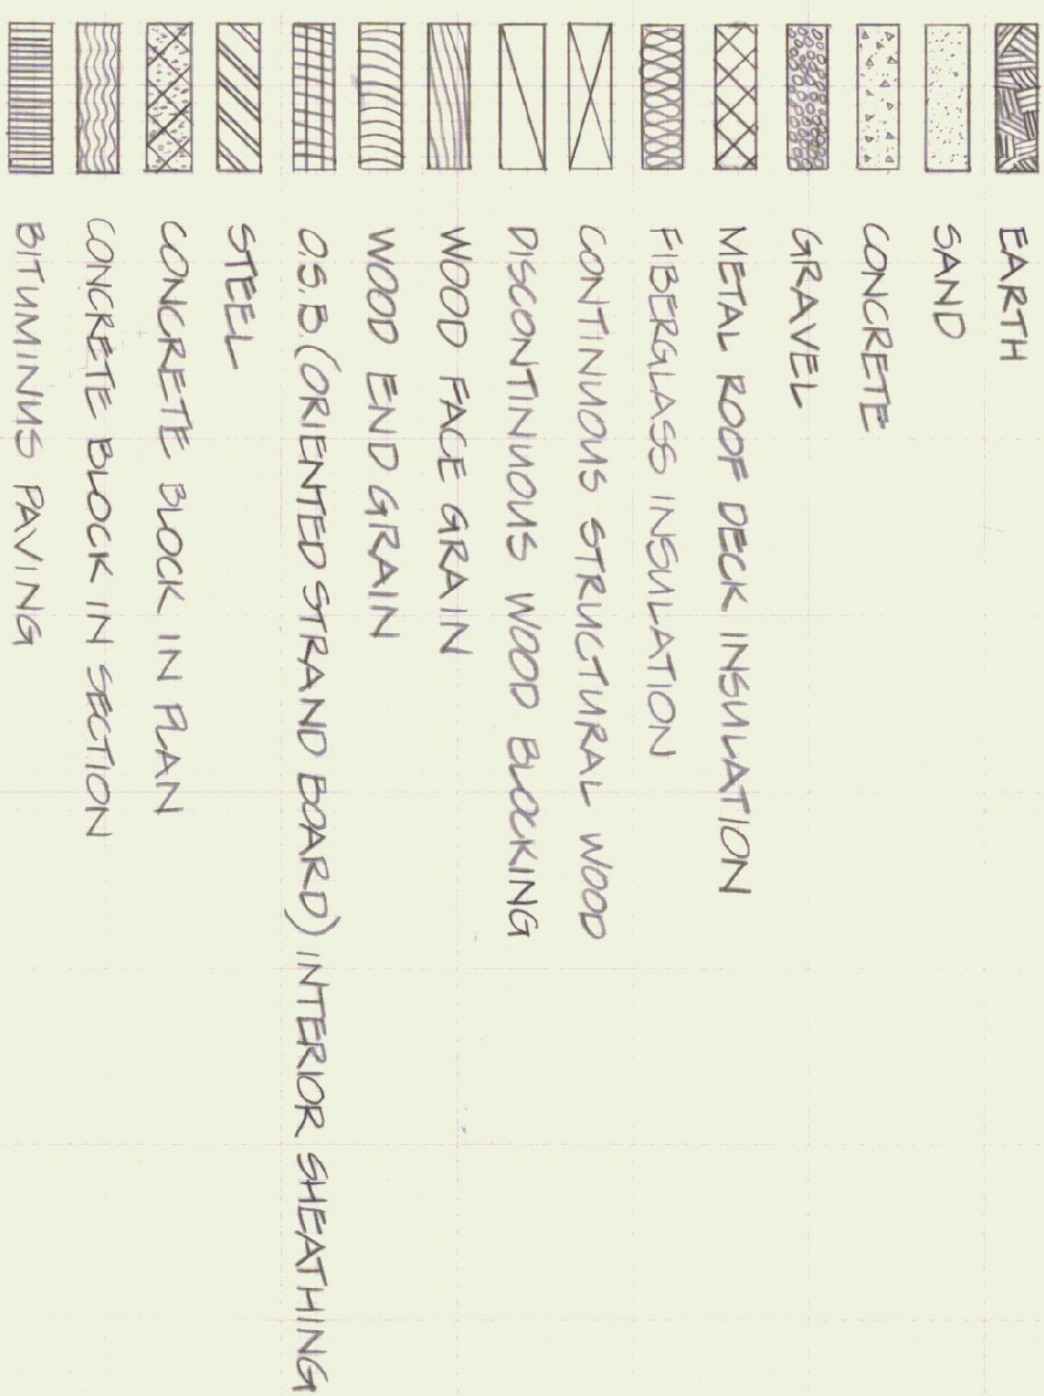 EARTH
SAND
CONCRETE
GRAVEL
METAL ROOF DECK INSULATION
FIBERGLASS INSULATION
CONTINUOUS STRUCTURAL WOOD
DISCONTINUOUS WOOD BLOCKING
WOOD FACE GRAIN
WOOD END GRAIN
O.S.B. (ORIENTED STRAND BOARD) INTERIOR SHEATHING
STEEL
CONCRETE BLOCK IN PLAN
CONCRETE BLOCK IN SECTION
BITUMINUS PAVING